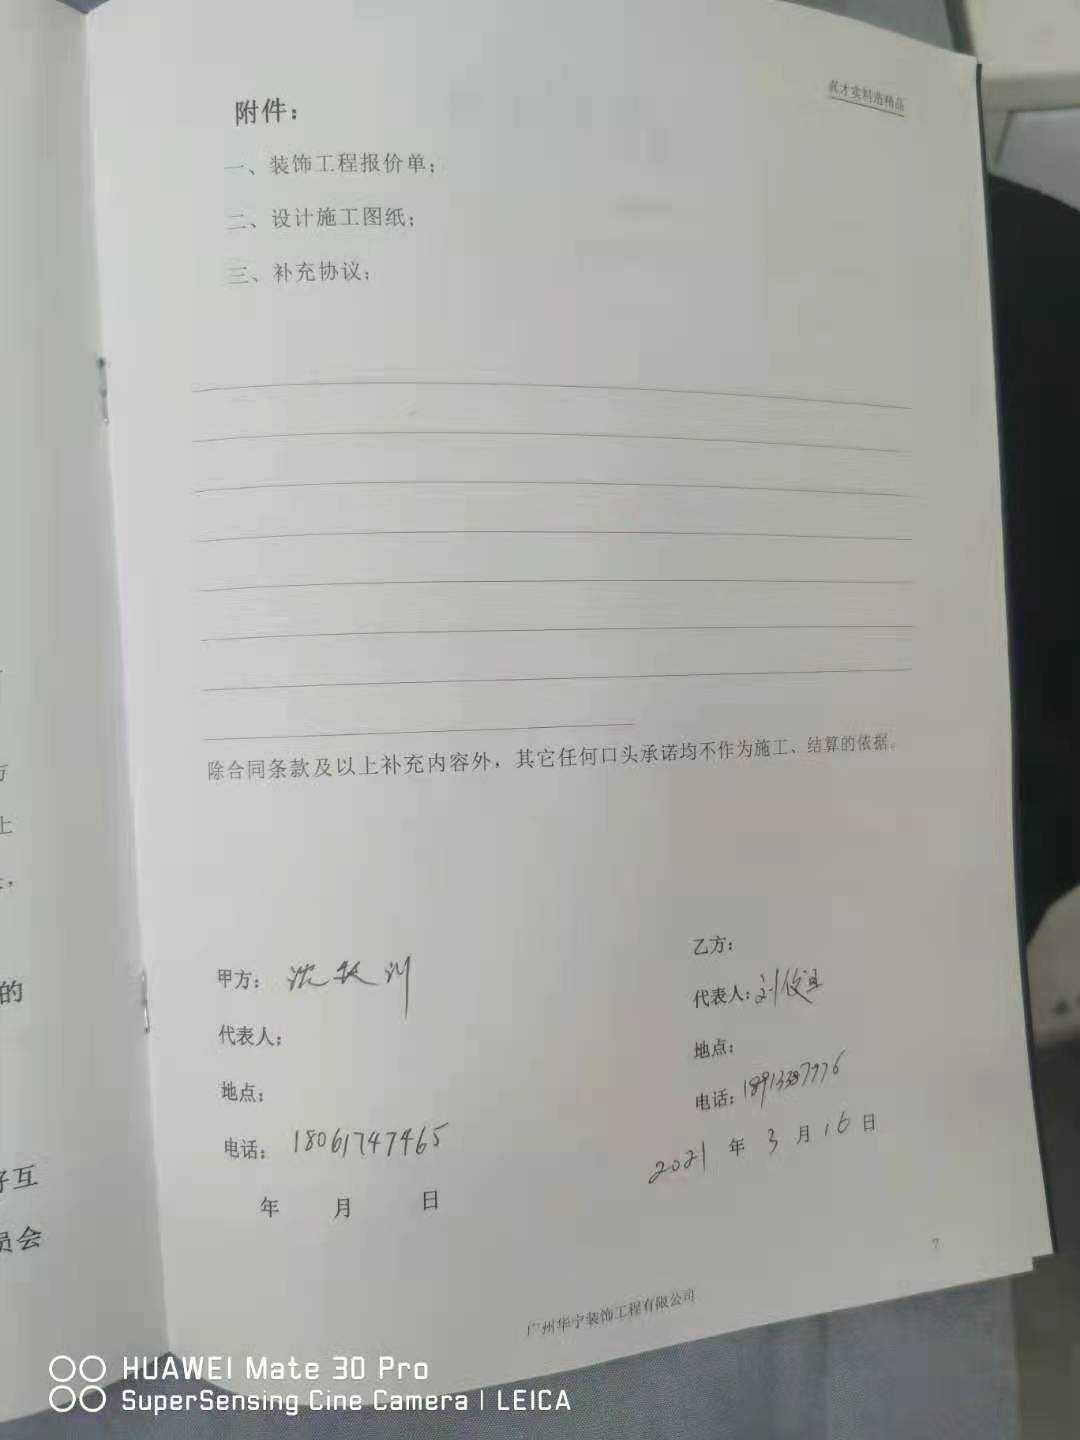 真才实料造精品
附件：
一、装饰工程报价单；
二、设计施工图纸；
三、补充协议；
除合同条款及以上补充内容外，其它任何口头承诺均不作为施工、结算的依据。
甲方：
代表人：
地点：
电话：18061747465
年 月 日
乙方：
代表人：刘俊
地点：
电话：18913387976
2021 年 3 月 16 日
7
广州华宁装饰工程有限公司
方
上
的
好互
员会
HUAWEI Mate 30 Pro
SuperSensing Cine Camera | LEICA